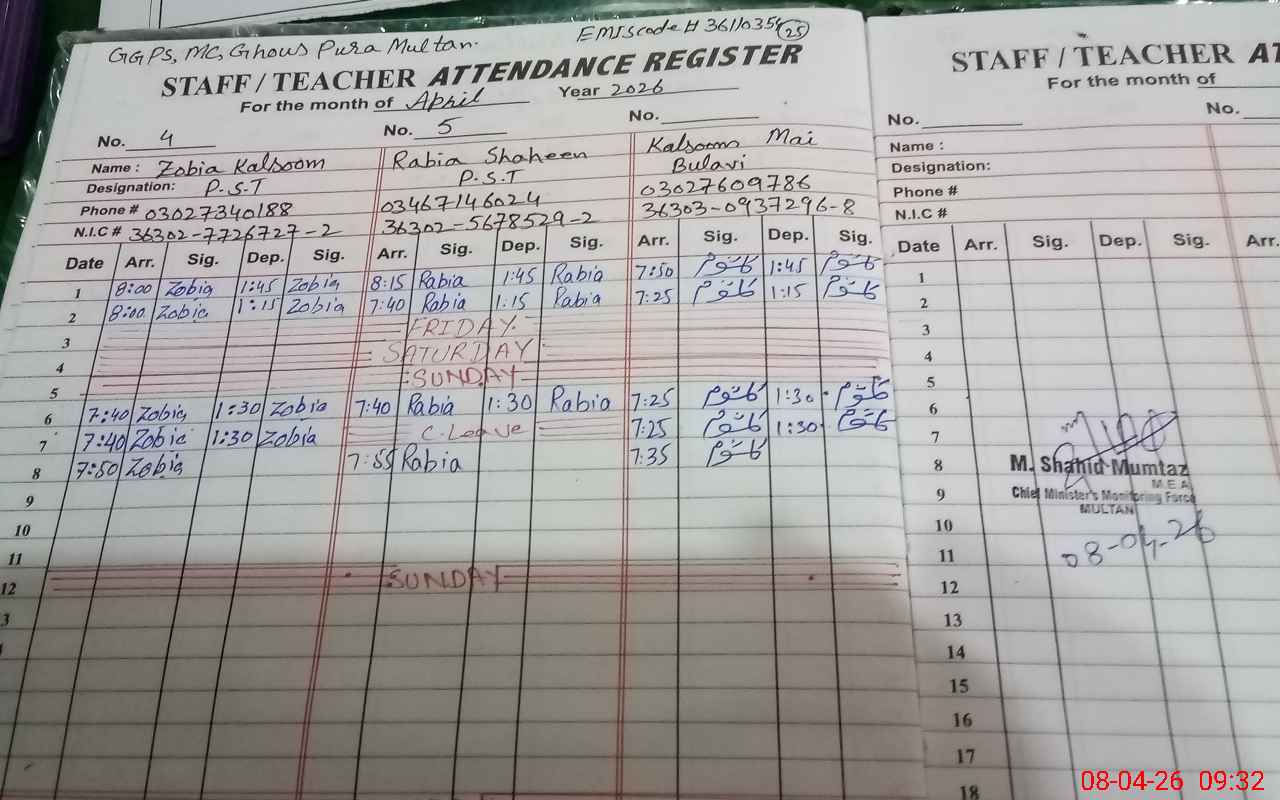 GGPS, MC, Ghous Pura Multan. EMIScode # 36110354 (25)
STAFF / TEACHER ATTENDANCE REGISTER
For the month of April Year 2026
No. 4 No. 5 No.
Name : Zobia Kalsoom Rabia Shaheen Kalsoom Mai
Designation: P.S.T P.S.T Bulavi
Phone # 03027340188 03467146024 03027609786
N.I.C # 36302-7726727-2 36302-5678529-2 36303-0937296-8
Date Arr. Sig. Dep. Sig. Arr. Sig. Dep. Sig. Arr. Sig. Dep. Sig.
1 8:00 Zobia 1:45 Zobia 8:15 Rabia 1:45 Rabia 7:50 کلثوم 1:45 کلثوم
2 8:00 Zobia 1:15 Zobia 7:40 Rabia 1:15 Rabia 7:25 کلثوم 1:15 کلثوم
3 FRIDAY.
4 SATURDAY
5 SUNDAY
6 7:40 Zobia 1:30 Zobia 7:40 Rabia 1:30 Rabia 7:25 کلثوم 1:30 کلثوم
7 7:40 Zobia 1:30 Zobia C.Leave 7:25 کلثوم 1:30 کلثوم
8 7:50 Zobia 7:55 Rabia 7:35 کلثوم
9
10
11
12 SUNDAY
3
STAFF / TEACHER AT
For the month of
No. No.
Name :
Designation:
Phone #
N.I.C #
Date Arr. Sig. Dep. Sig. Arr.
1
2
3
4
5
6
7
8
9
10
11
12
13
14
15
16
17
18
M. Shahid Mumtaz
M.E.A
Chief Minister's Monitoring Force
MULTAN
08-04-26
08-04-26 09:32